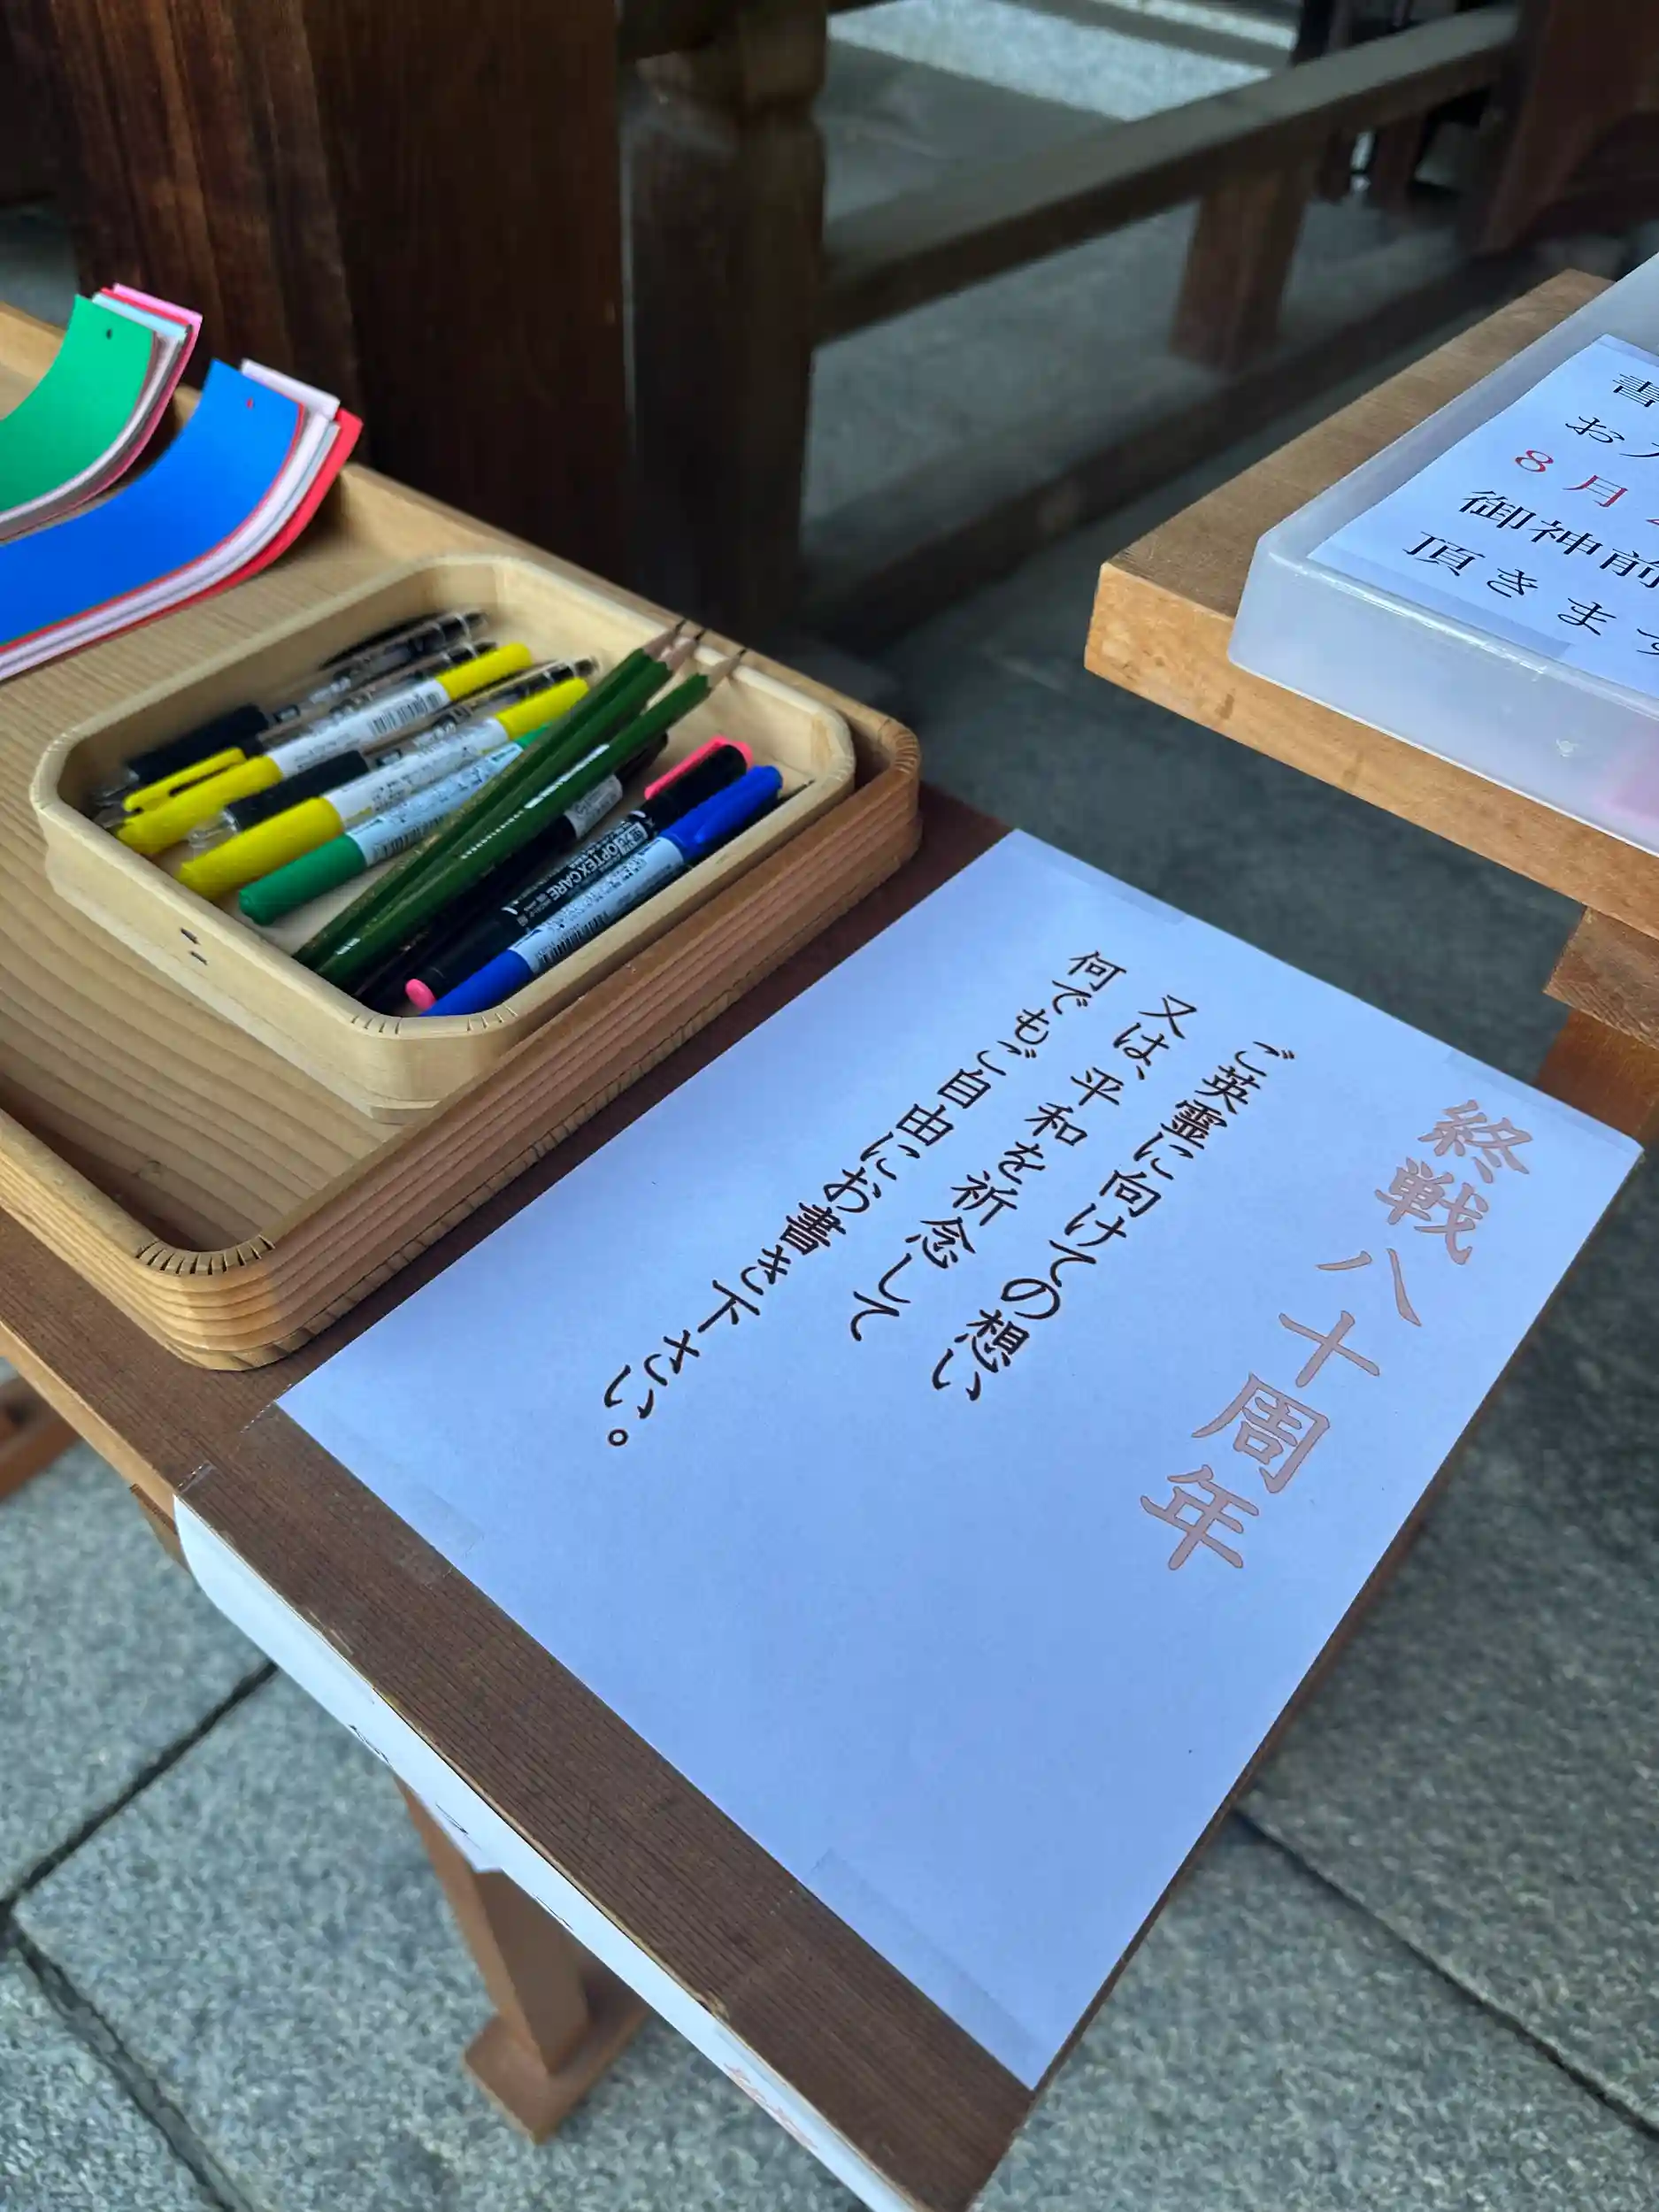 終戦八十周年
ご英霊に向けての想い
又は、平和を祈念して
何でもご自由にお書き下さい。
書
お
8月
御神前
頂きます
OPTEX CARE